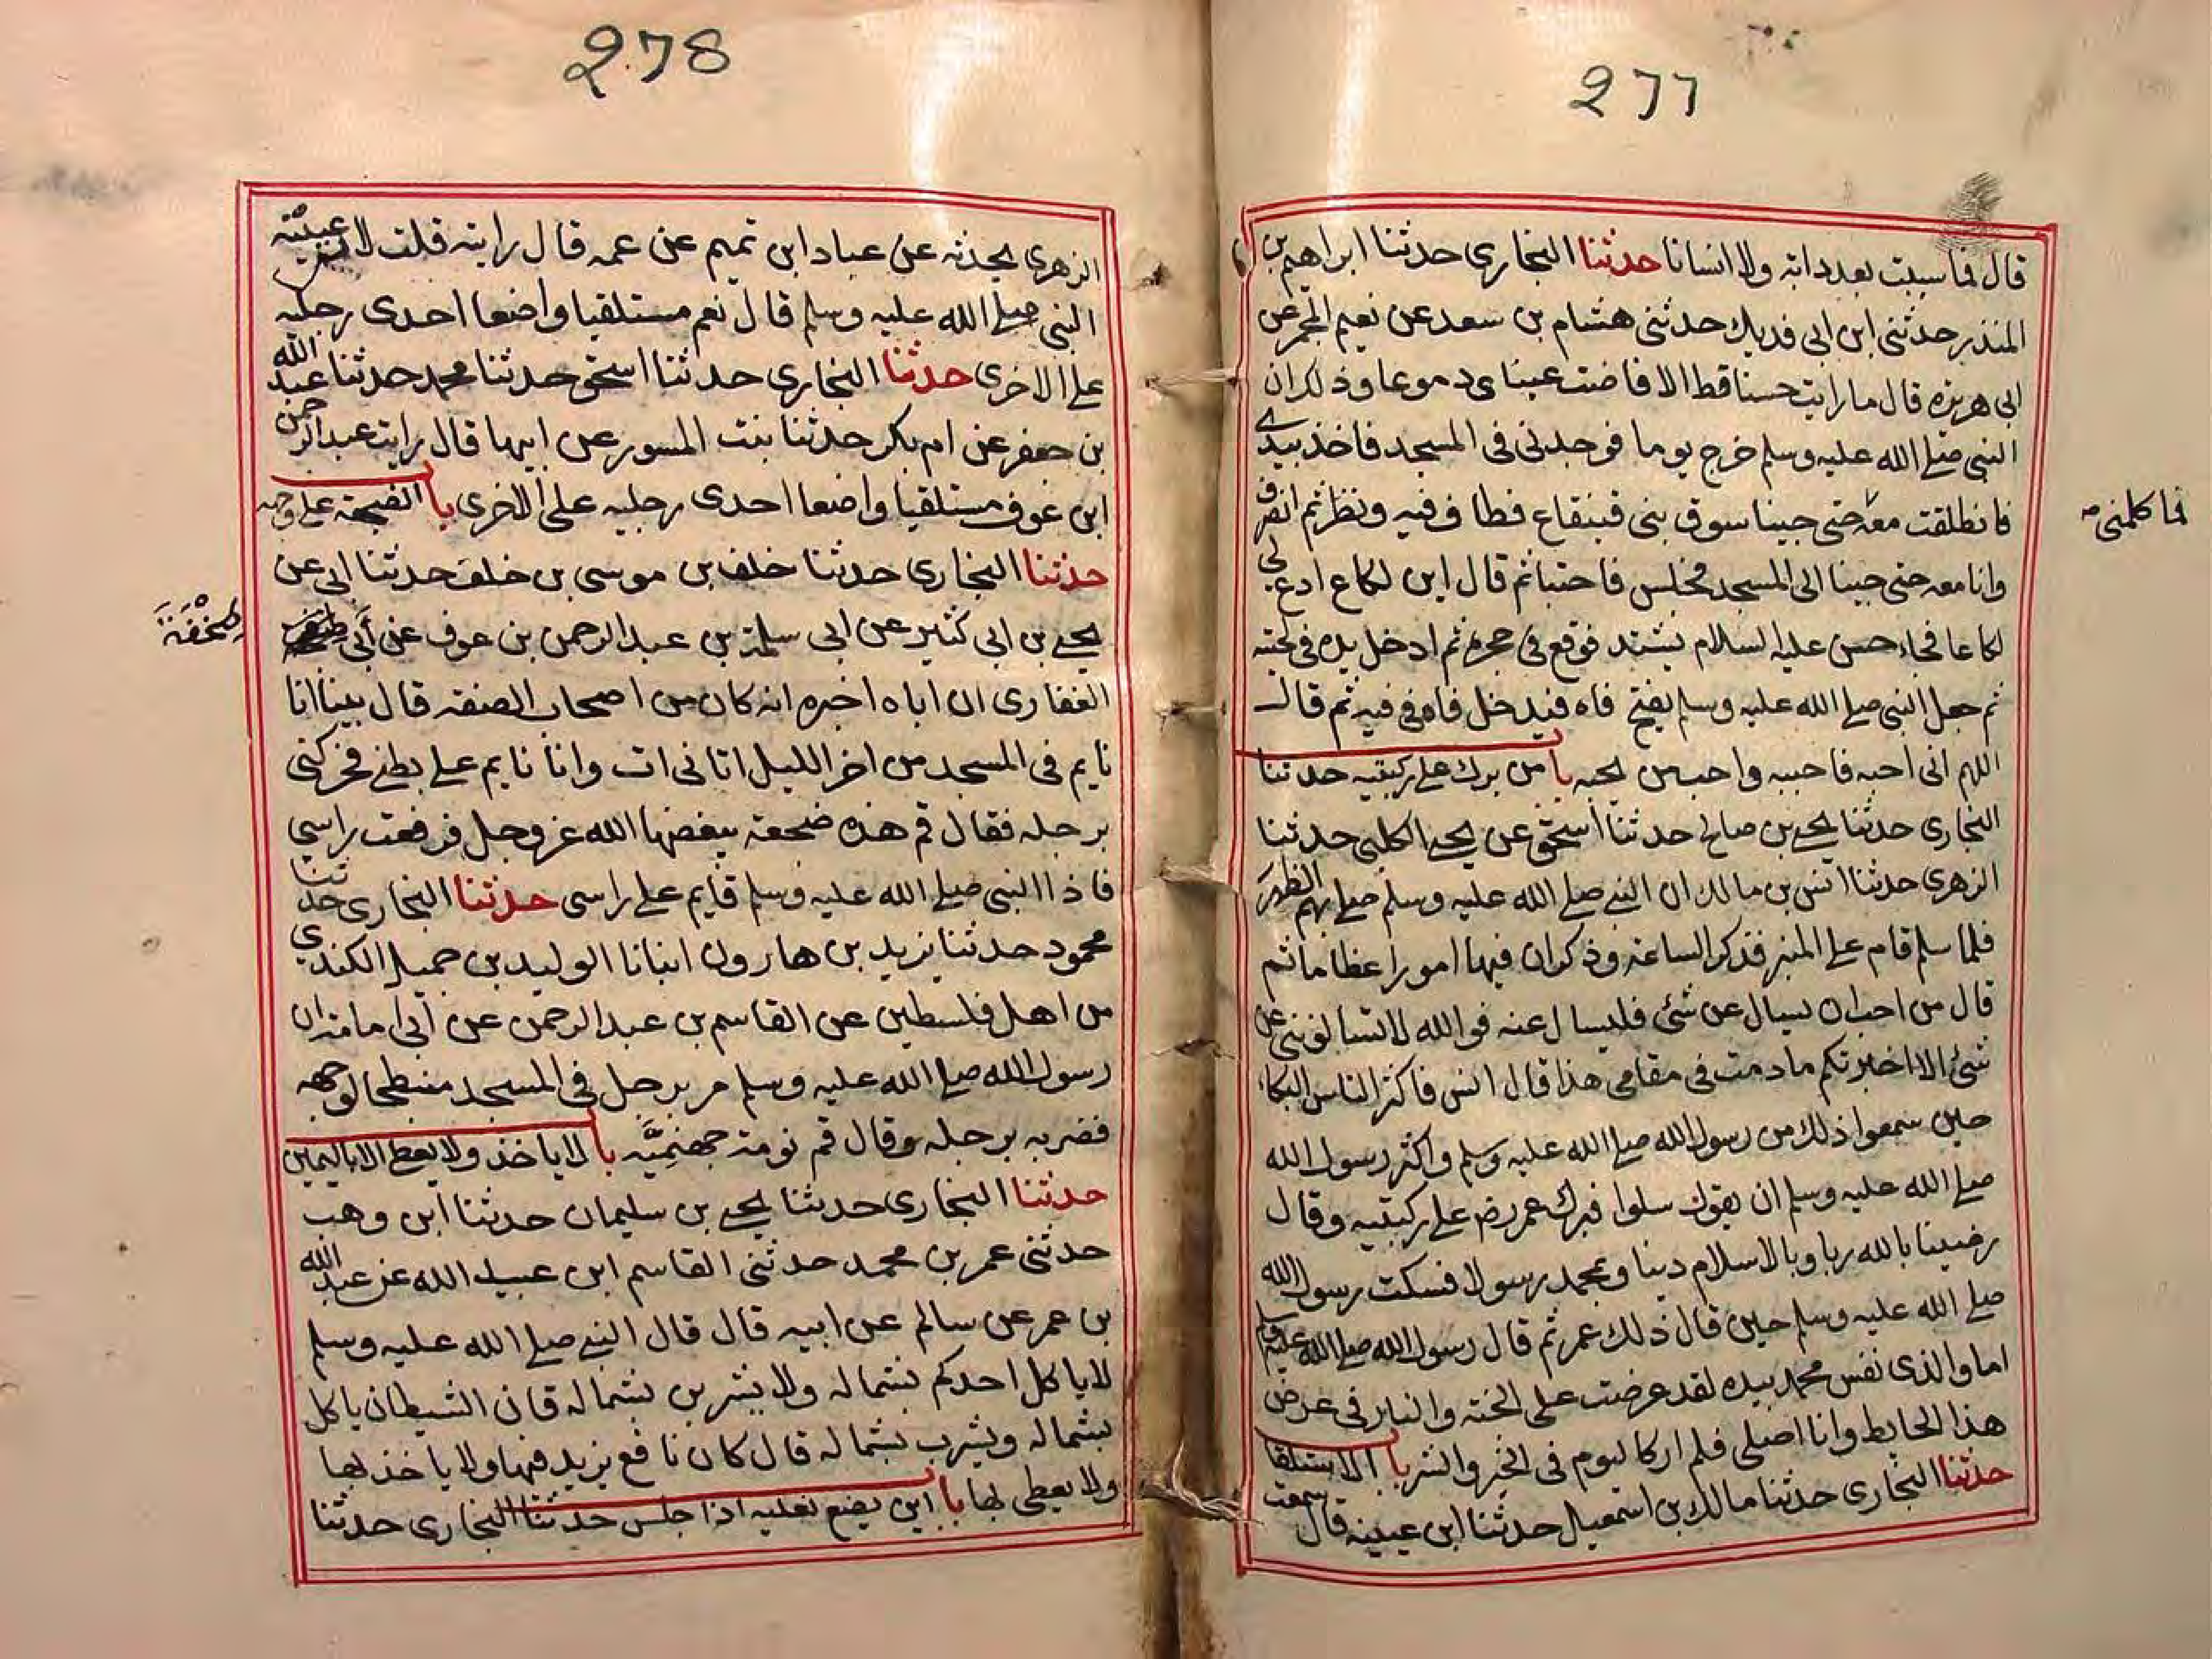 277
قال فما سببت بعد دابه ولا انسانا حدثنا البخاري حدثنا ابراهيم بن
المنذر حدثني ابن ابي فديك حدثني هشام بن سعد عن نعيم المجمر عن
ابي هريره قال ما رايت حسنا قط الا فاضت عيناي دموعا وذلك ان
النبي صلى الله عليه وسلم خرج يوما فوجدني في المسجد فاخذ بيدي
فانطلقت معه حتى جينا سوق بني قينقاع فطاف فيه ونظر ثم انصرف
فما كلمني
وانا معه حتى جينا الى المسجد فجلس فاحتبا ثم قال اين لكاع ادع لي
لكاعا فجاء حسن عليه السلام يشتد فوقع في حجره ثم ادخل يده في لحيته
ثم جعل النبي صلى الله عليه وسلم يفتح فاه فيدخل فاه في فيه ثم قال
اللهم اني احبه فاحببه واحب من يحبه با من برك على ركبتيه حدثنا
البخاري حدثنا يحيى بن صالح حدثنا اسحق عن يحيى الكلبي حدثنا
الزهري حدثنا انس بن مالك ان النبي صلى الله عليه وسلم صلى بهم الظهر
فلما سلم قام على المنبر فذكر الساعة وذكر ان فيها امورا عظاما ثم
قال من احب ان يسال عن شئ فليسال عنه فوالله لا تسالونني عن
شئ الا اخبرتكم ما دمت في مقامي هذا قال انس فاكثر الناس البكاء
حين سمعوا ذلك من رسول الله صلى الله عليه وسلم واكثر رسول الله
صلى الله عليه وسلم ان يقول سلوا فبرك عمر رض على ركبتيه وقال
رضينا بالله ربا وبالاسلام دينا وبمحمد رسولا فسكت رسول الله
صلى الله عليه وسلم حين قال ذلك عمر ثم قال رسول الله صلى الله عليه وسلم
اما والذي نفس محمد بيده لقد عرضت علي الجنه والنار في عرض
هذا الحايط وانا اصلي فلم ار كاليوم في الخير والشر با الاستلقا
حدثنا البخاري حدثنا مالك بن اسمعيل حدثنا ابن عيينه قال سمعت
278
الزهري يحدثه عن عباد ابن تميم عن عمه قال رايته قلت لابن عيينة
النبي صلى الله عليه وسلم قال نعم مستلقيا واضعا احدى رجليه
على الاخرى حدثنا البخاري حدثنا اسحق حدثنا محمد حدثنا عبد الله
بن جعفر عن ام بكر حدثنا بنت المسور عن ابيها قال رايت عبد الرحمن
ابن عوف مستلقيا واضعا احدى رجليه على الاخرى با الضجعة على وجهه
حدثنا البخاري حدثنا خلف بن موسى بن خلف حدثنا ابي عن
يحيى بن ابي كثير عن ابي سلمة بن عبد الرحمن بن عوف عن أبي
طخفة
الغفاري ان اباه اخبره انه كان من اصحاب الصفة قال بينا انا
نايم في المسجد من اخر الليل اتاني ات وانا نايم على بطني فحركني
برجله فقال قم هذه ضجعة يبغضها الله عز وجل فرفعت راسي
فاذا النبي صلى الله عليه وسلم قايم على راسي حدثنا البخاري حدثنا
محمود حدثنا يزيد بن هارون انبانا الوليد بن جميل الكندي
من اهل فلسطين عن القاسم بن عبد الرحمن عن أبي امامة ان
رسول الله صلى الله عليه وسلم مر برجل في المسجد منبطحا لوجهه
فضربه برجله وقال قم نومة جهنمية با لا ياخذ ولا يعطي الا باليمين
حدثنا البخاري حدثنا يحيى بن سليمان حدثنا ابن وهب
حدثني عمر بن محمد حدثني القاسم ابن عبيد الله عن عبد الله
بن عمر عن سالم عن ابيه قال قال النبي صلى الله عليه وسلم
لا ياكل احدكم بشماله ولا يشربن بشماله فان الشيطان ياكل
بشماله ويشرب بشماله قال كان نافع يزيد فيها ولا ياخذ بها
ولا يعطي بها با اين يضع نعليه اذا جلس حدثنا البخاري حدثنا